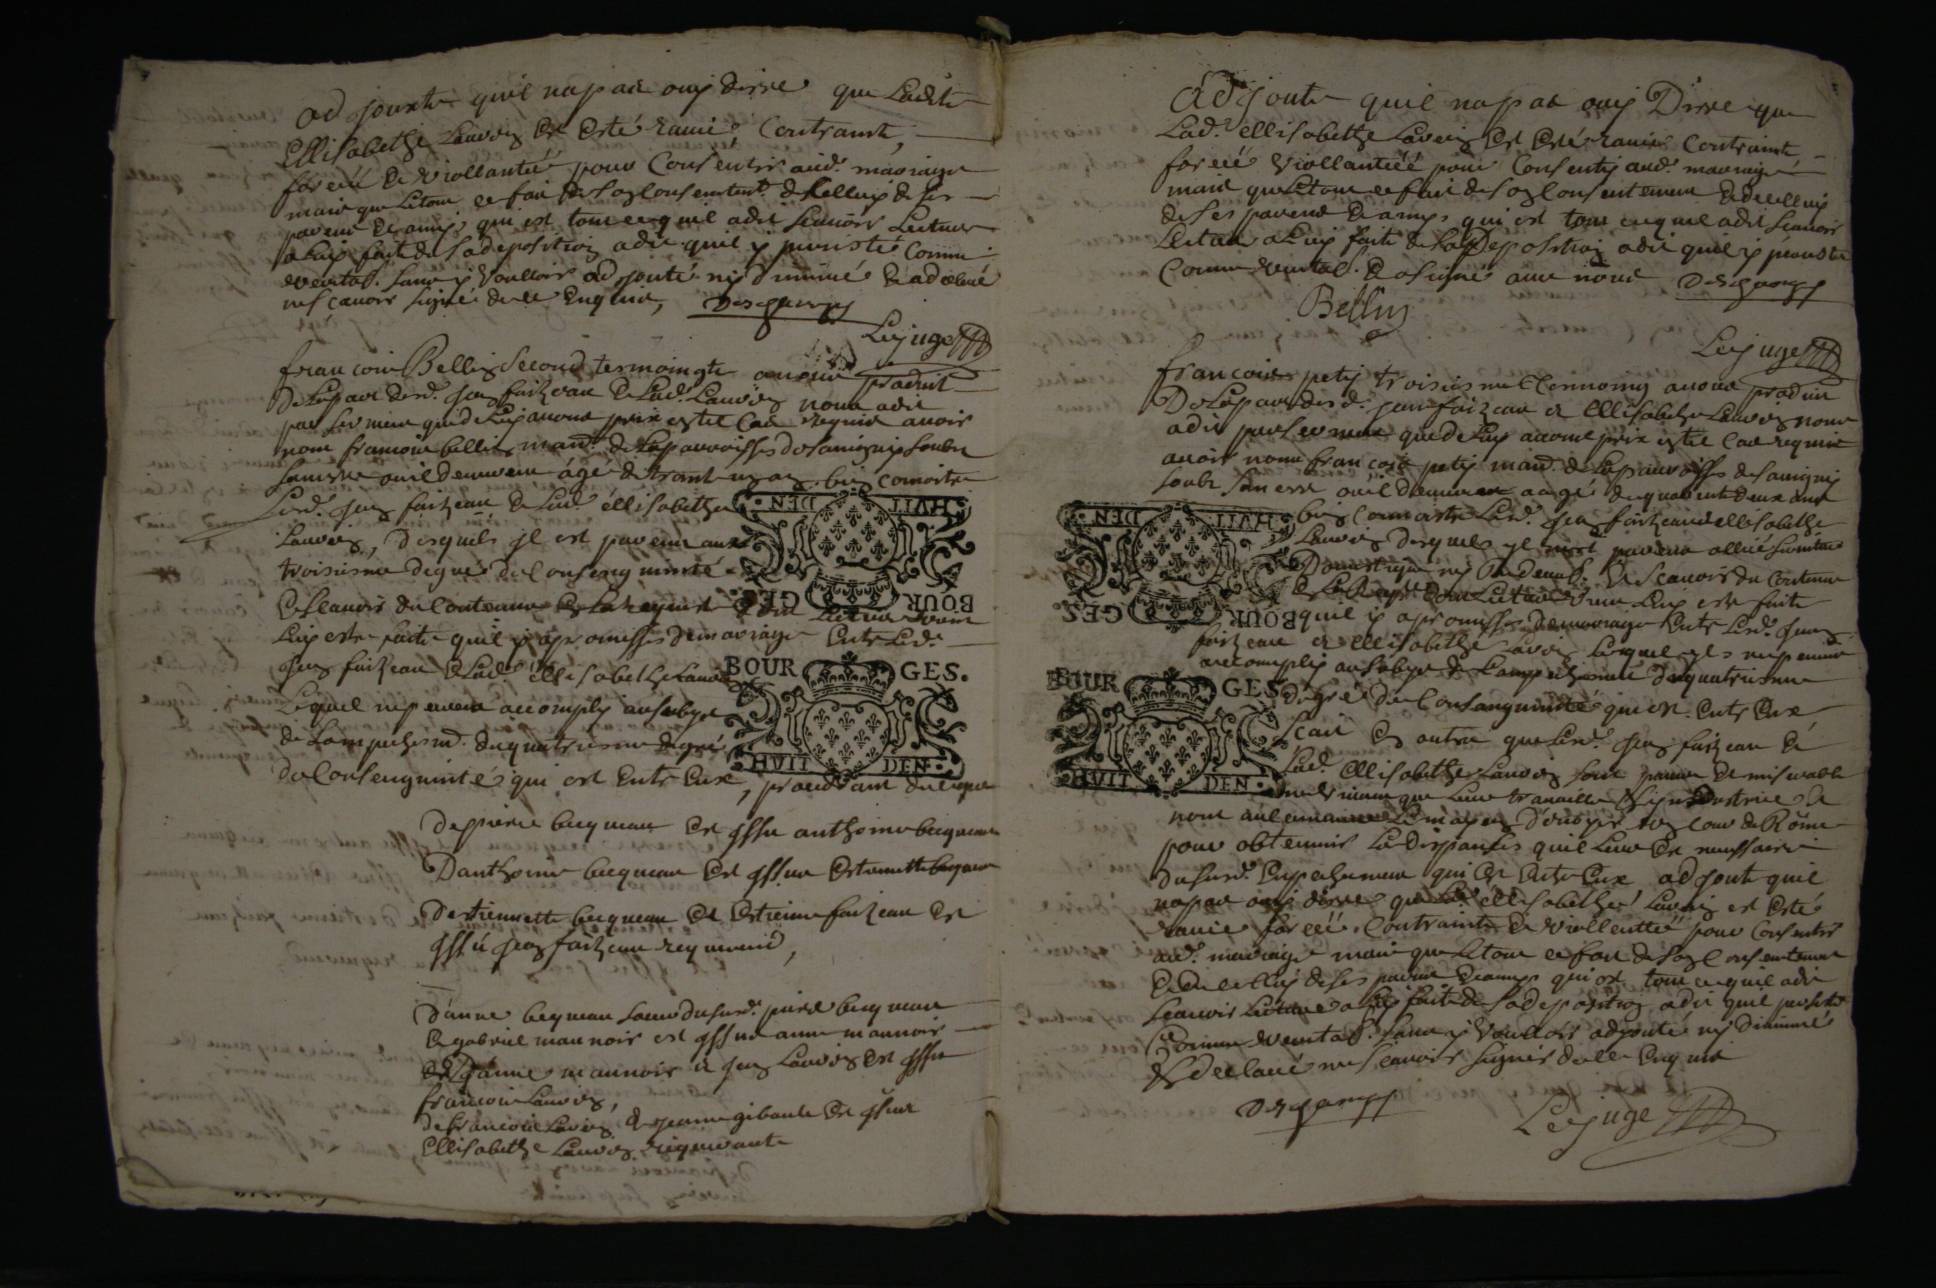 adjouxte quil napas ouy dirre que Ladite
Ellisabethe Lauvois Et Esté ravie Contrainte,
forcéé Et viollantéé pour Consentir aud. mariage
mais que Letout ce fait de son Consentemt. & celluy de ses
parens Et amis qui est tout ce quil a dit scavoir Lecture
a luy fait de sa deposition a dit quil y perciste Comme
veritab. sans y voulloir adjouté ny diminué Et a declaré
ne scavoir signé de ce Enquis, Deschamps
Lejuge
francois Bellin second tesmoingt avons produit
De La part dud. Jean faizeau Et Lad. Lauvois nous a dit
par serment que de Luy avons prix estel Cas requis avoir
nom francois bellin mand. de La parroisse de savigny soubz
sanserre ou il demeure âgé de trant un an bien connoitre
Led. Jean faizeau Et Lad. éllisabethe
Lauvois, desquels jl est parent au
troisieme degré de Consenguinité
Et scavoir du Contenu En La requeste dont Lecture vient
Luy estre faite quil y a promisses de mariage Entre Led.
Jean faizeau Et Lad. éllisabethe Lauvois
Lequel ne peuvent accomplir au subjet
de Lempechemt. du quatriesme degré
de Consenguinité qui est Entre Eux, procedant de ce que
De pierre bequeau Est jssu anthoine bequeau
D'anthoine bequeau Est jssue Estiennette bequeau
D'estiennette bequeau Et Estienne faizeau Est
jssu Jean faizeau requerand,
D'anne bequeau soeur dusud. pierre bequeau
Et gabriel mannoir est jssue anne mannoir
De Lad. anne mannoir Et Jean Lauvois Est jssu
francois Lauvois,
De francois Lauvois & Jeanne gibault Est jssue
Ellisabethe Lauvois requerante
HUIT DEN.
BOURGES.
BOUR GES.
HUIT DEN.
Adjoute quil napas ouy Dirre que
Lad. ellisabethe Lauvois Et Esté ravie Contrainte
forcéé viollantéé pour Consentir aud. mariage
mais que Letout ce fait de son Consentement Et de celluy
de ses parens Et amys qui est tout ce quil a dit scavoir
Lecture a Luy faite de sa Deposition a dit quil y perciste
Comme veritab. Et a signé avec nous Deschamps
Bellin
Lejuge
francois petit troisieme tesmoing avons produit
De La part dud. Jean faizeau Et Ellisabethe Lauvois nous
a dit par serment que de Luy avons prix estel Cas requis
avoir nom francois petit mand. de La parroisse de savigny
soubz sanserre ou il demeure aagé de quarent deux ans
bien Connoistre Led. Jean faizeau Et ellisabethe
Lauvois desquels jl n'est parent allié serviteur
Domestique ny Et scavoir du Contenu
En La Requeste dont Lecture vient Luy estre faite
quil y a promisses de mariage Entre Led. Jean
faizeau Et ellisabethe Lauvois Lequel jls ne peuvent
accomplir au subjet de Lempechement du quatriesme
degré de Consanguinité qui est Entre Eux
scait En outre que Led. Jean faizeau Et
Lad. Ellisabethe Lauvois sont pauvres Et miserable
ne vivant que Leur travaille Et jndustrie Et
nont aulcunement Le moyen d'envoyer En Cour de Rome
pour obtennir La dispanses quil Leur Est necessaire
dusud. Empechement qui Est Entre Eux adjoute quil
napas ouy dirre que Lad. éllisabethe Lauvois est Esté
ravie forcéé Contrainte Et viollentée pour Consentir
aud. mariage mais que Letout ce fait de son Consentement
Et de celluy de ses parens Et amys qui est tout ce quil a dit
scavoir Lecture a Luy faite de sa deposition a dit quil perciste
Comme veritab. sans y voulloir adjouté ny diminué
Et a declaré ne scavoir signer de ce Enquis
Deschamps
Lejuge
HUIT DEN.
BOURGES.
BOUR GES.
HUIT DEN.